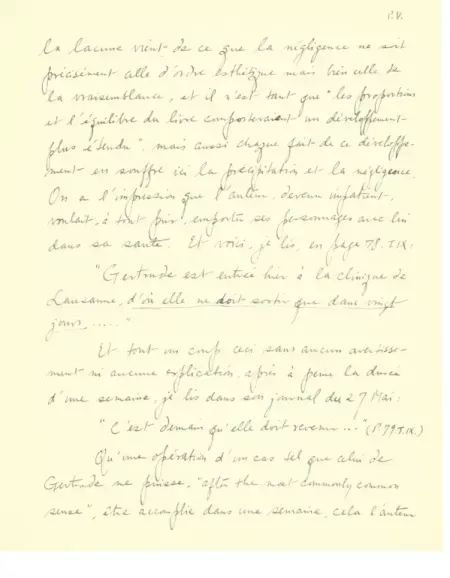 P.V.
la lacune vient de ce que la négligence ne soit
précisément celle d'ordre esthétique mais bien celle de
la vraisemblance, et il n'est tant que "les proportions
et l'équilibre du livre comporteraient un développement
plus étendu", mais aussi chaque fait de ce développe-
ment en souffre ici la précipitation et la négligence.
On a l'impression que l'auteur, devenu impatient,
voulait, à tout prix, emporter ses personnages avec lui
dans sa santé. Et voici, je lis, en page 78. T.IX:
"Gertrude est entrée hier à la clinique de
Lausanne, d'où elle ne doit sortir que dans vingt
jours....."
Et tout un coup ceci sans aucun avertisse-
ment ni aucune explication, après à peine la durée
d'une semaine, je lis dans son journal du 27 Mai:
"C'est demain qu'elle doit revenir..." (P.79.T.IX.)
Qu'une opération d'un cas tel que celui de
Gertrude ne puisse, "after the most commonly common
sense", être accomplie dans une semaine, cela l'auteur